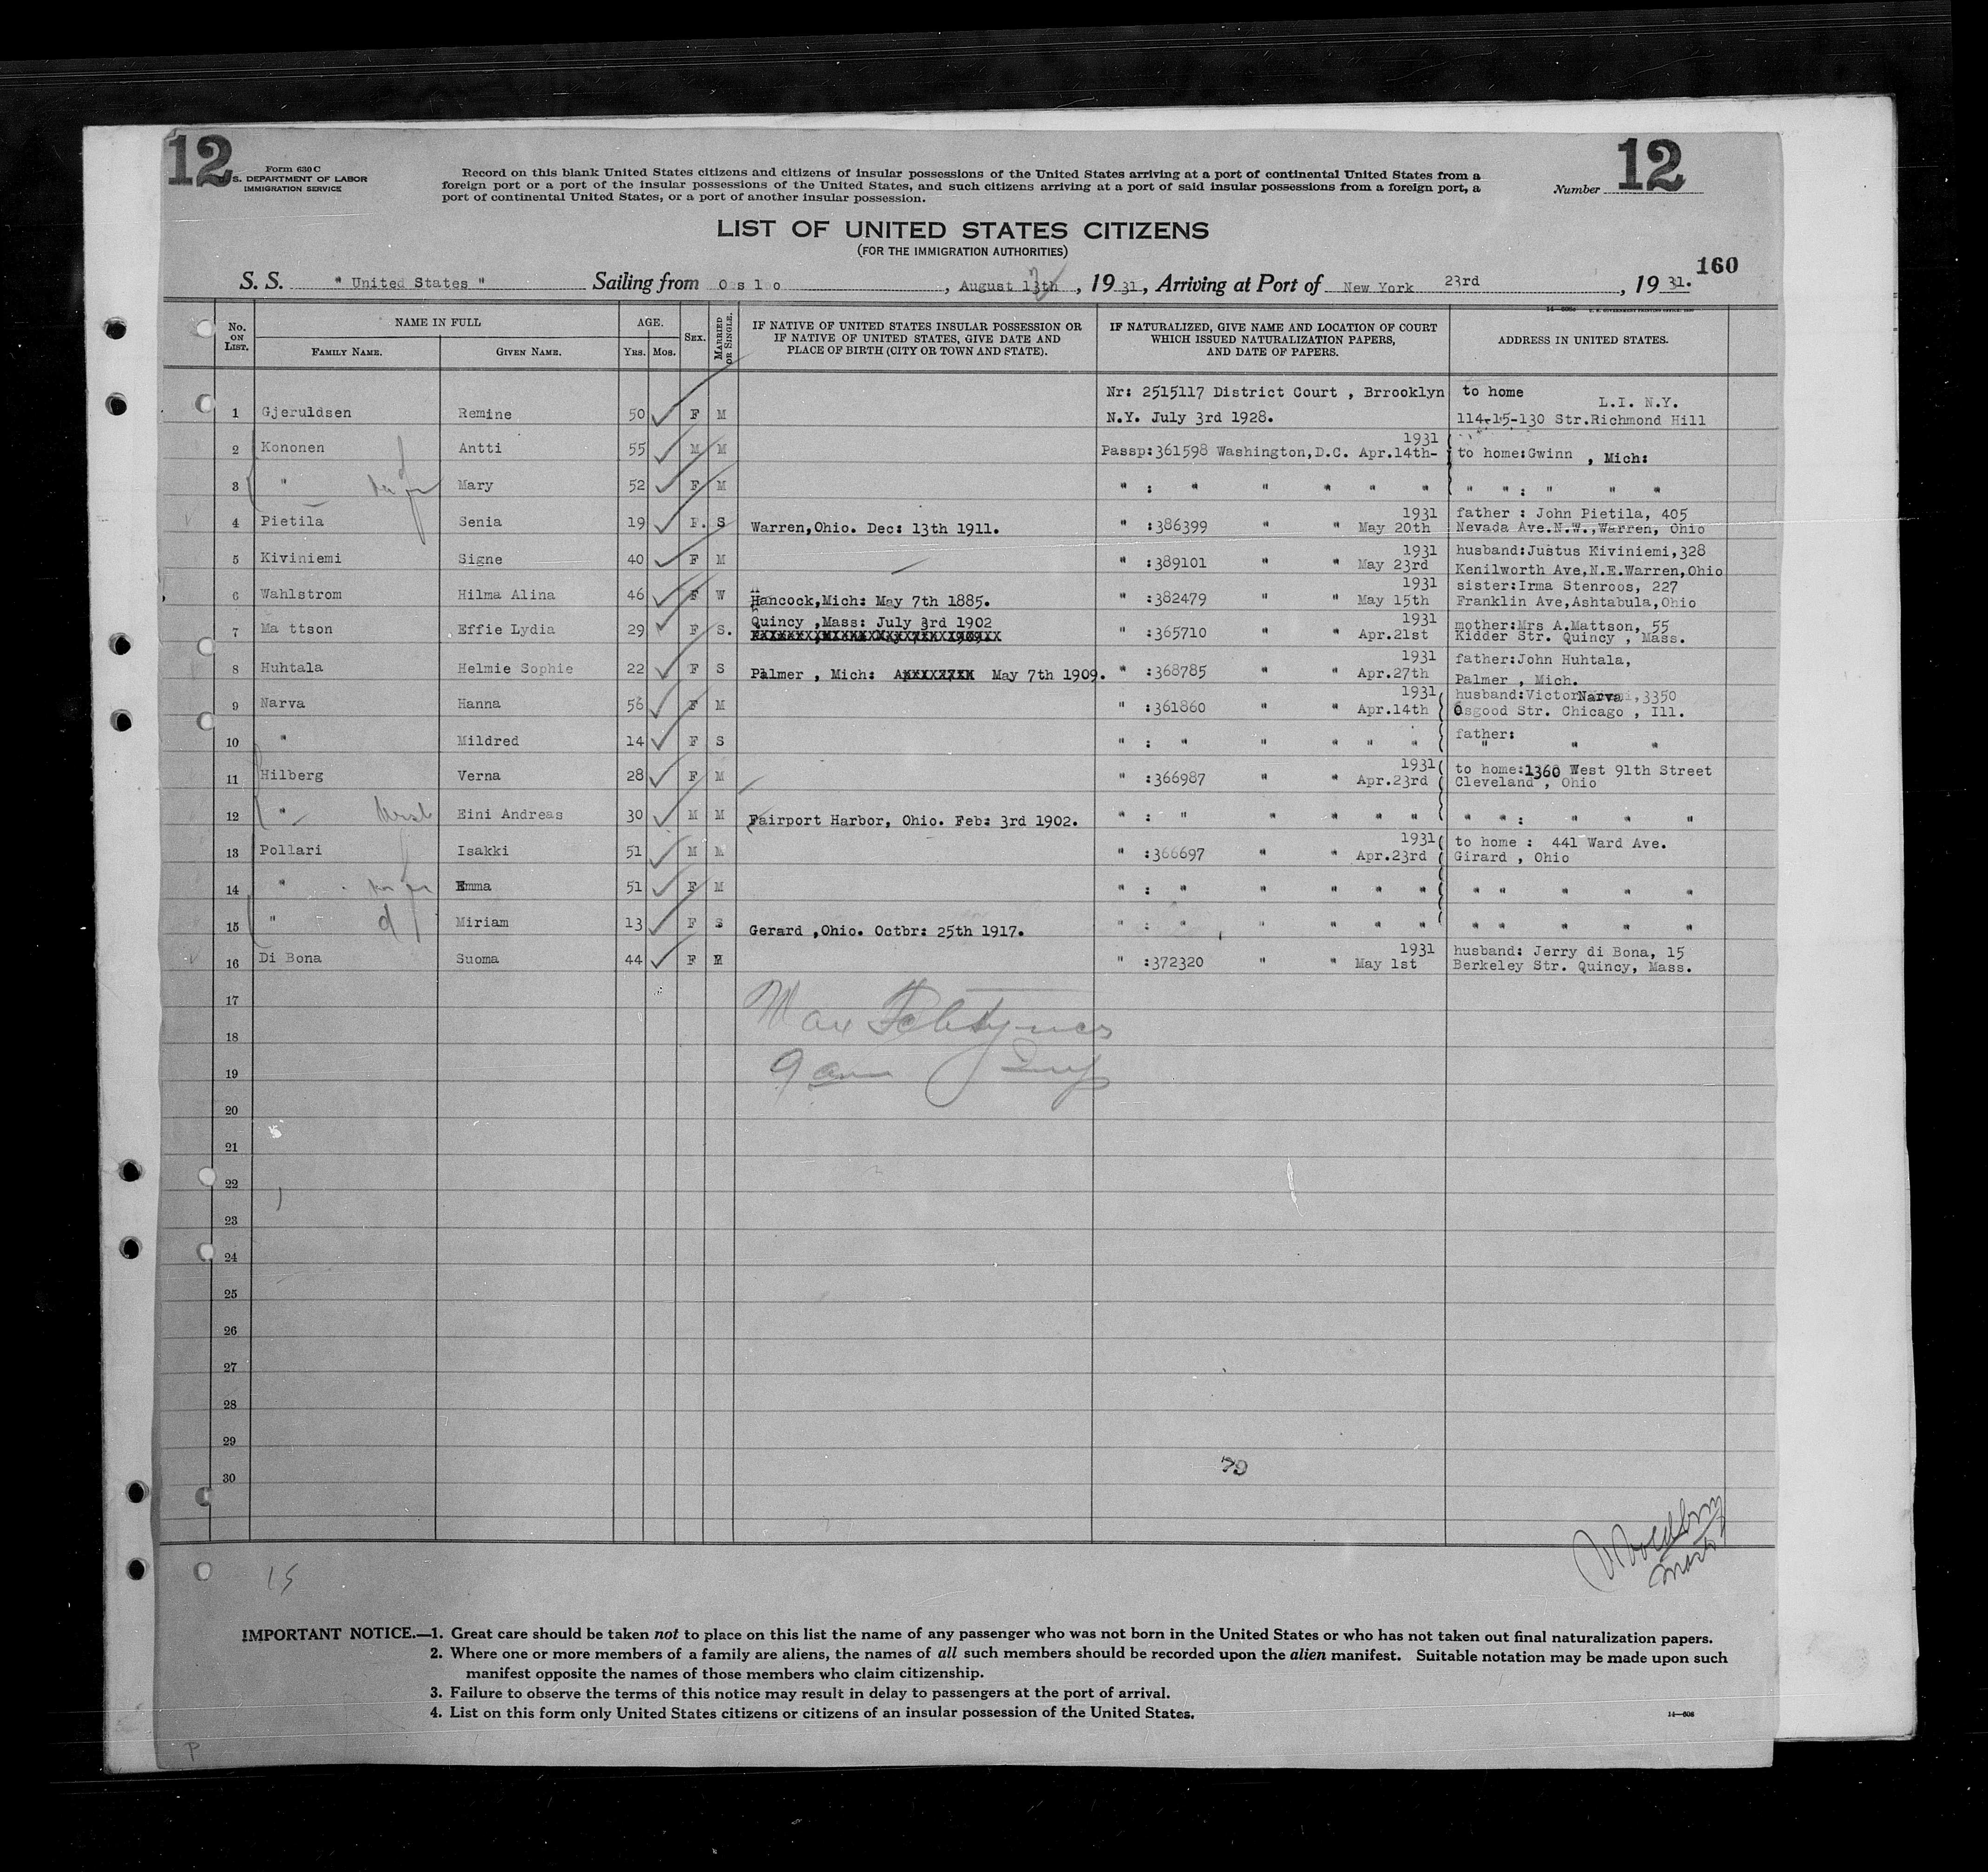 12
Form 630 C
U. S. DEPARTMENT OF LABOR
IMMIGRATION SERVICE
Record on this blank United States citizens and citizens of insular possessions of the United States arriving at a port of continental United States from a
foreign port or a port of the insular possessions of the United States, and such citizens arriving at a port of said insular possessions from a foreign port, a
port of continental United States, or a port of another insular possession.
Number 12
LIST OF UNITED STATES CITIZENS
(FOR THE IMMIGRATION AUTHORITIES)
160
S. S. " United States " Sailing from Oslo, August 13th, 1931, Arriving at Port of New York 23rd, 1931.
No. ON LIST. NAME IN FULL FAMILY NAME. GIVEN NAME. AGE. YRS. MOS. SEX. MARRIED OR SINGLE. IF NATIVE OF UNITED STATES INSULAR POSSESSION OR IF NATIVE OF UNITED STATES, GIVE DATE AND PLACE OF BIRTH (CITY OR TOWN AND STATE). IF NATURALIZED, GIVE NAME AND LOCATION OF COURT WHICH ISSUED NATURALIZATION PAPERS, AND DATE OF PAPERS. ADDRESS IN UNITED STATES.
Nr: 2515117 District Court , Brrooklyn to home
L.I. N.Y.
1 Gjeruldsen Remine 50 F M N.Y. July 3rd 1928. 114-15-130 Str.Richmond Hill
1931
2 Kononen Antti 55 M M Passp:361598 Washington,D.C. Apr.14th- to home:Gwinn , Mich:
3 " Mary 52 F M " : " " " " " " " : " " "
1931 father : John Pietila, 405
4 Pietila Senia 19 F. S Warren,Ohio. Dec: 13th 1911. " :386399 " " May 20th Nevada Ave.N.W.,Warren, Ohio
1931 husband:Justus Kiviniemi,328
5 Kiviniemi Signe 40 F M " :389101 " " May 23rd Kenilworth Ave,N.E.Warren,Ohio
1931 sister:Irma Stenroos, 227
6 Wahlstrom Hilma Alina 46 F W Hancock,Mich: May 7th 1885. " :382479 " " May 15th Franklin Ave,Ashtabula,Ohio
Quincy ,Mass: July 3rd 1902 1931 mother:Mrs A.Mattson, 55
7 Ma ttson Effie Lydia 29 F S. " :365710 " " Apr.21st Kidder Str. Quincy , Mass.
1931 father:John Huhtala,
8 Huhtala Helmie Sophie 22 F S Palmer , Mich: May 7th 1909. " :368785 " " Apr.27th Palmer , Mich.
1931 husband:Victor Narva ,3350
9 Narva Hanna 56 F M " :361860 " " Apr.14th Osgood Str. Chicago , Ill.
father:
10 " Mildred 14 F S " : " " " " " " " "
1931 to home:1360 West 91th Street
11 Hilberg Verna 28 F M " :366987 " " Apr.23rd Cleveland , Ohio
12 " Eini Andreas 30 M M Fairport Harbor, Ohio. Feb: 3rd 1902. " : " " " " " " " : " " "
1931 to home : 441 Ward Ave.
13 Pollari Isakki 51 M M " :366697 " " Apr.23rd Girard , Ohio
14 " Emma 51 F M " : " " " " " " " " " "
15 " Miriam 13 F S Gerard ,Ohio. Octbr: 25th 1917. " : " " " " " " " " " "
1931 husband: Jerry di Bona, 15
16 Di Bona Suoma 44 F M " :372320 " " May 1st Berkeley Str. Quincy, Mass.
17
18
19
20
21
22
23
24
25
26
27
28
29
30
15
IMPORTANT NOTICE.—1. Great care should be taken not to place on this list the name of any passenger who was not born in the United States or who has not taken out final naturalization papers.
2. Where one or more members of a family are aliens, the names of all such members should be recorded upon the alien manifest. Suitable notation may be made upon such
manifest opposite the names of those members who claim citizenship.
3. Failure to observe the terms of this notice may result in delay to passengers at the port of arrival.
4. List on this form only United States citizens or citizens of an insular possession of the United States.
14—608